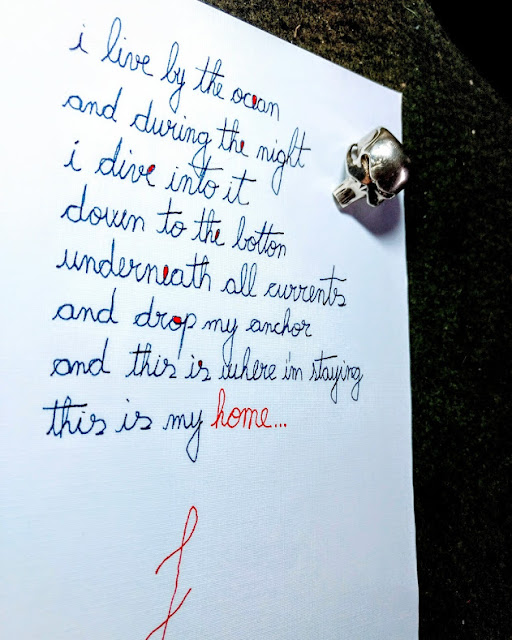 i live by the ocean
and during the night
i dive into it
down to the botton
underneath all currents
and drop my anchor
and this is where i'm staying
this is my home...